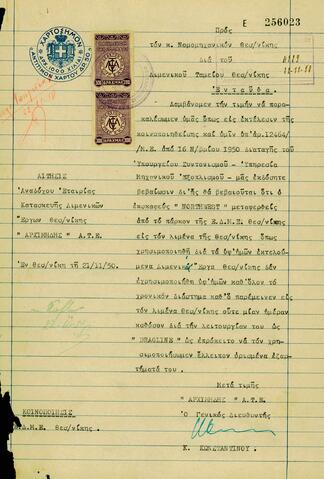 Ε 256023
ΧΑΡΤΟΣΗΜΟΝ
Πρός
τόν κ. Νομομηχανικόν Θεσ/νίκης
Διά τοῦ
Λιμενικοῦ Ταμείου Θεσ/νίκης
Ἐνταῦθα
Λαμβάνομεν τήν τιμήν νά παρα-
καλέσωμεν ὑμᾶς ὅπως εἰς ἐκτέλεσιν τῆς
κοινοποιηθείσης καί ἡμῖν ὑπ'ἀρ.12464/
/Μ.Ε. ἀπό 16 Ν/βρίου 1950 Διαταγῆς τοῦ
Ὑπουργείου Συντονισμοῦ - Ὑπηρεσία
Μηχανικοῦ Ἐξοπλισμοῦ - μᾶς ἐκδόσητε
βεβαίωσιν δι'ἧς θά βεβαιοῦται ὅτι ὁ
ἐκσκαφεύς "NORTHWEST" μεταφερθείς
ἀπό τό πάρκον τῆς Ε.Δ.Μ.Ε. Θεσ/νίκης
εἰς τόν λιμένα Θεσ/νίκης ὅπως
χρησιμοποιηθῆ διά τά ὑφ'ἡμῶν ἐκτελού-
μενα Λιμενικά Ἔργα Θεσ/νίκης δέν
ἐχρησιμοποιήθη ὑφ'ἡμῶν καθ'ὅλον τό
χρονικόν διάστημα καθ'ὅ παρέμεινεν εἰς
τόν λιμένα Θεσ/νίκης οὔτε μίαν ἡμέραν
καθόσον διά τήν λειτουργίαν του ὡς
"DRAGLINE" ὡς ἐπρόκειτο νά τόν χρη-
σιμοποιήσωμεν ἔλλειπον ὡρισμένα ἐξαρ-
τήματά του.
ΑΙΤΗΣΙΣ
Ἀναδόχου Ἑταιρίας
Κατασκευῆς Λιμενικῶν
Ἔργων Θεσ/νίκης
"ΑΡΧΙΜΗΔΗΣ" Α.Τ.Ε.
Ἐν Θεσ/νίκη τῆ 21/11/50.
Μετά τιμῆς
"ΑΡΧΙΜΗΔΗΣ" Α.Τ.Ε.
Ὁ Γενικός Διευθυντής
Κ. ΚΩΝΣΤΑΝΤΙΝΟΥ.
ΚΟΙΝΟΠΟΙΗΣΙΣ
Ε.Δ.Μ.Ε Θεσ/νίκης.